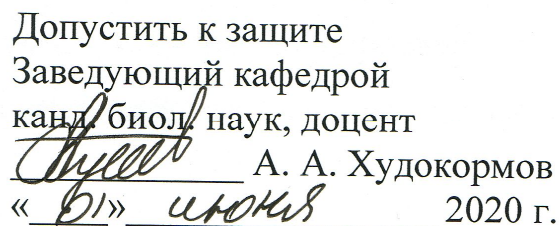 Допустить к защите
Заведующий кафедрой
канд. биол. наук, доцент
А. А. Худокормов
«01» июня 2020 г.